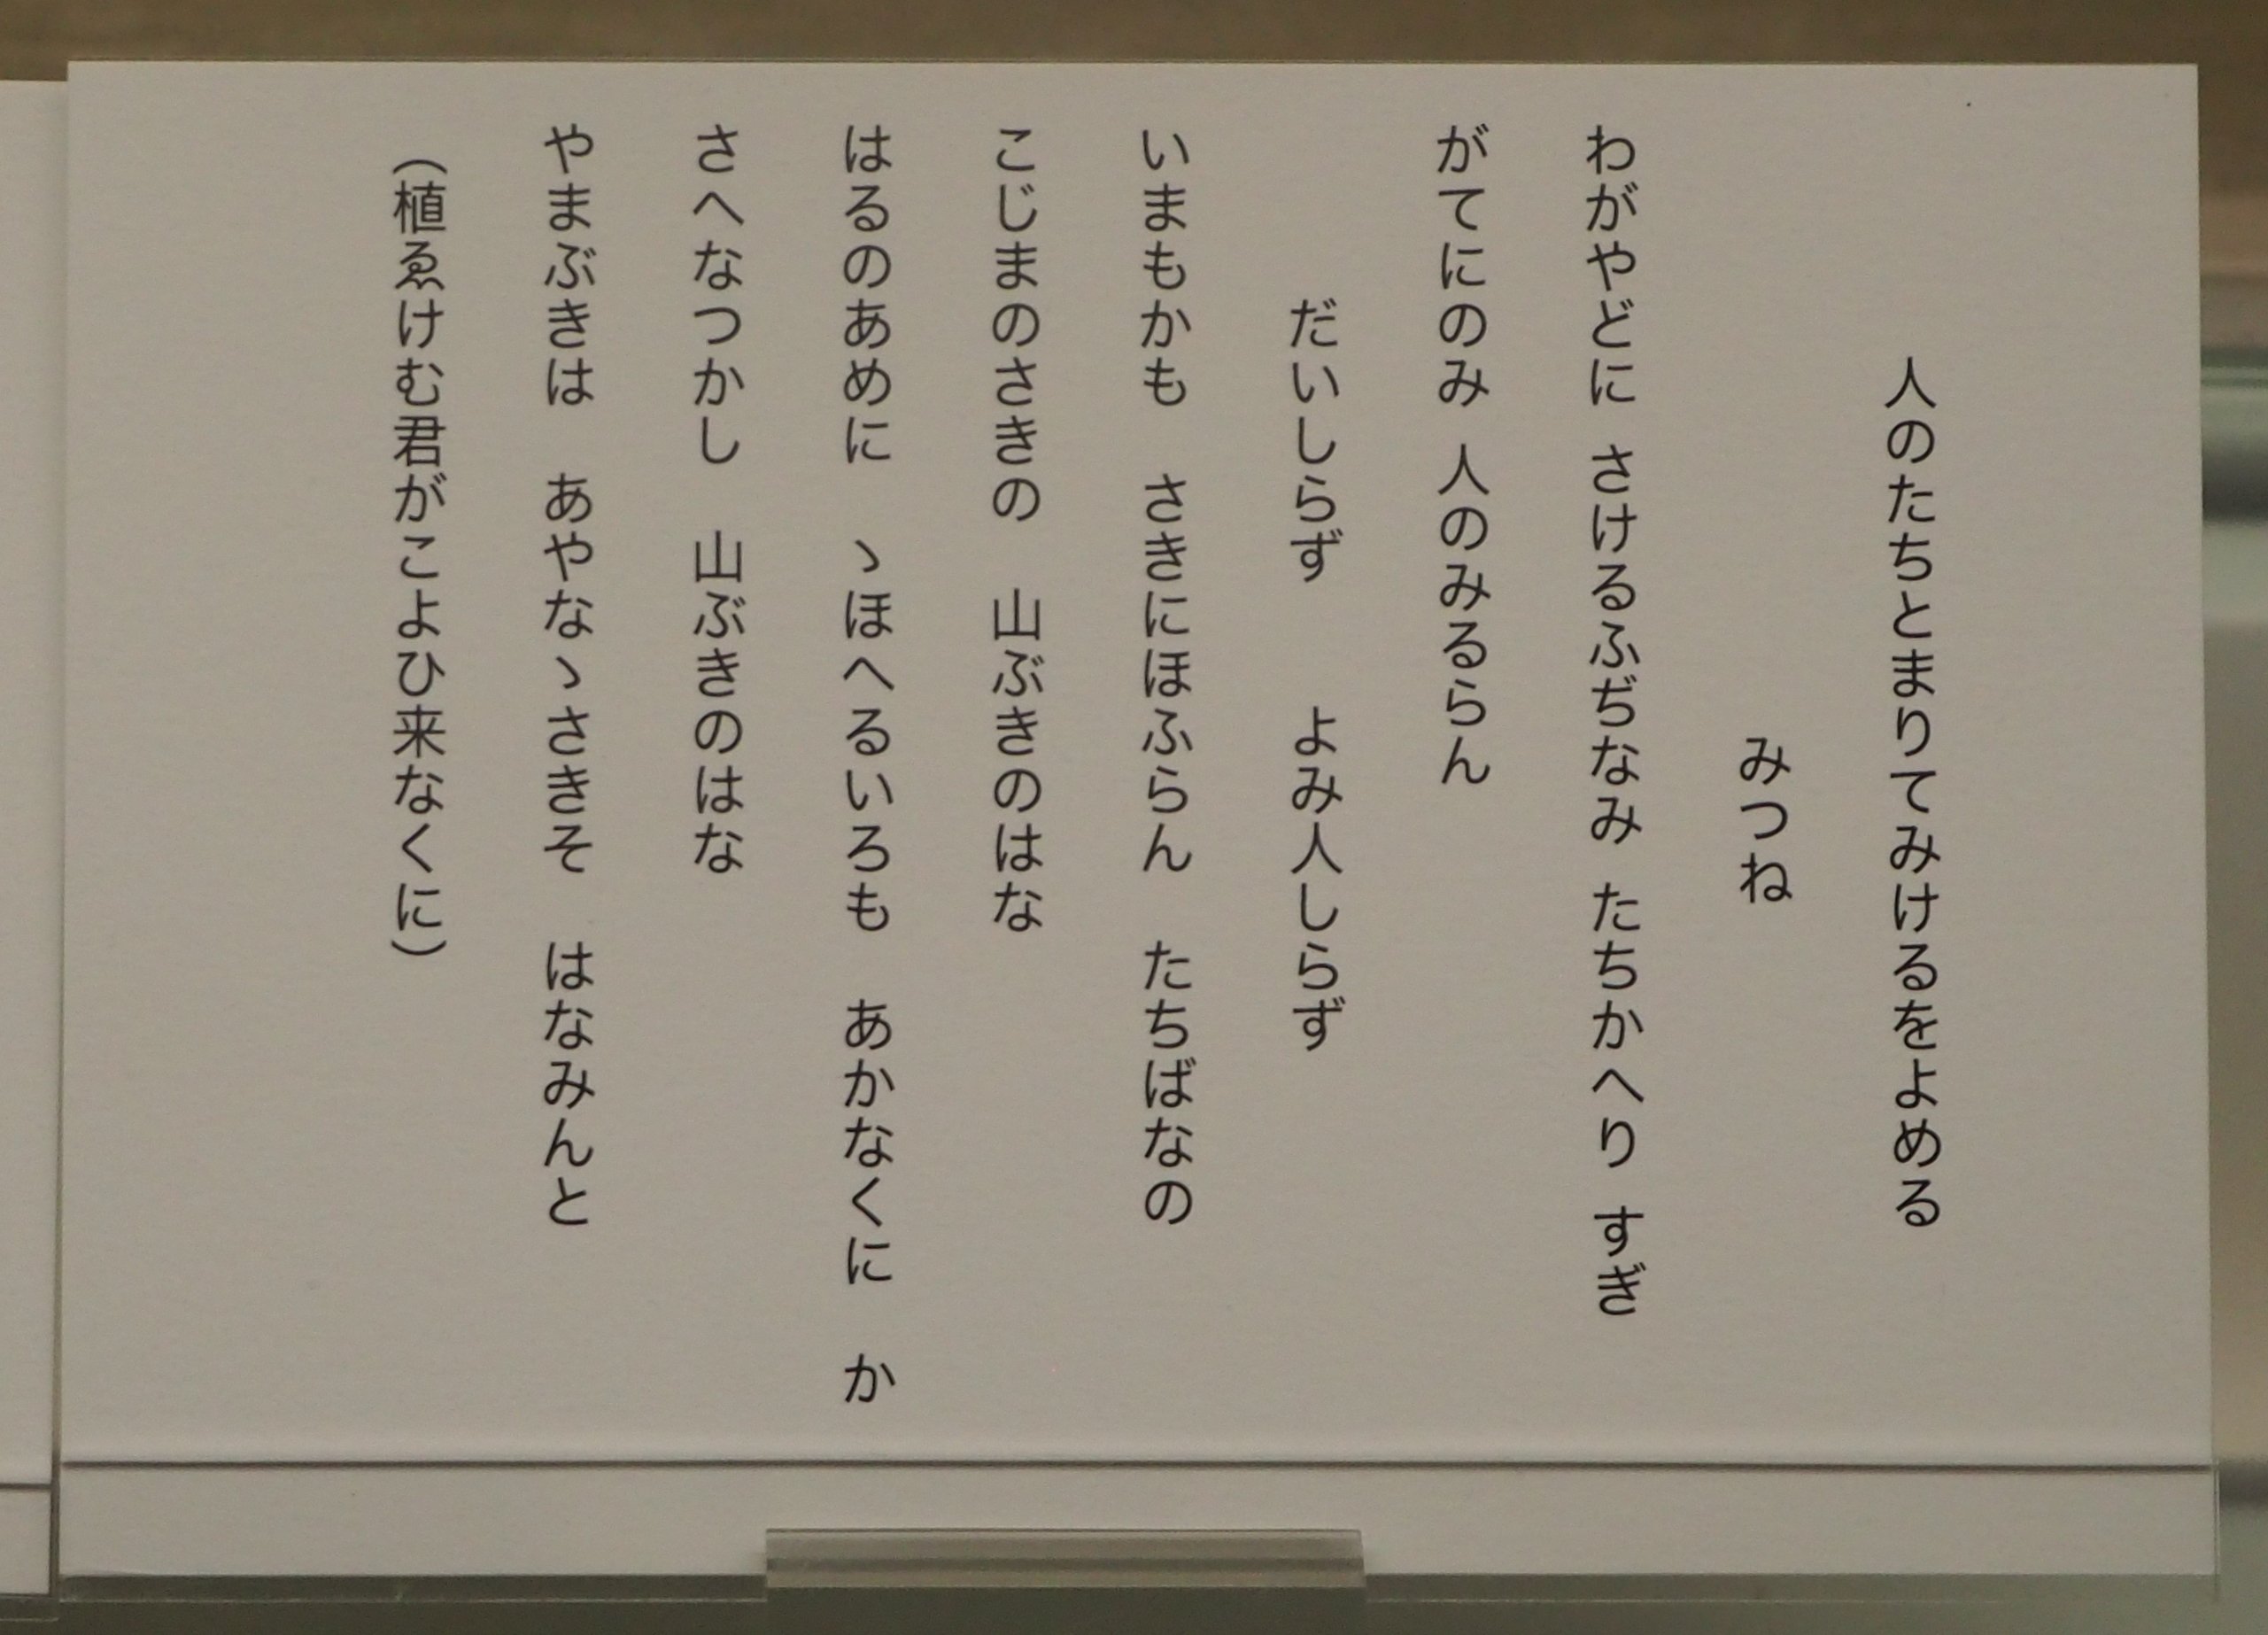 人のたちとまりてみけるをよめる
みつね
わがやどに さけるふぢなみ たちかへり すぎ
がてにのみ 人のみるらん
だいしらず　　よみ人しらず
いまもかも　さきにほふらん　たちばなの
こじまのさきの　山ぶきのはな
はるのあめに　ゝほへるいろも　あかなくに　か
さへなつかし　山ぶきのはな
やまぶきは　あやなゝさきそ　はなみんと
（植ゑけむ君がこよひ来なくに）